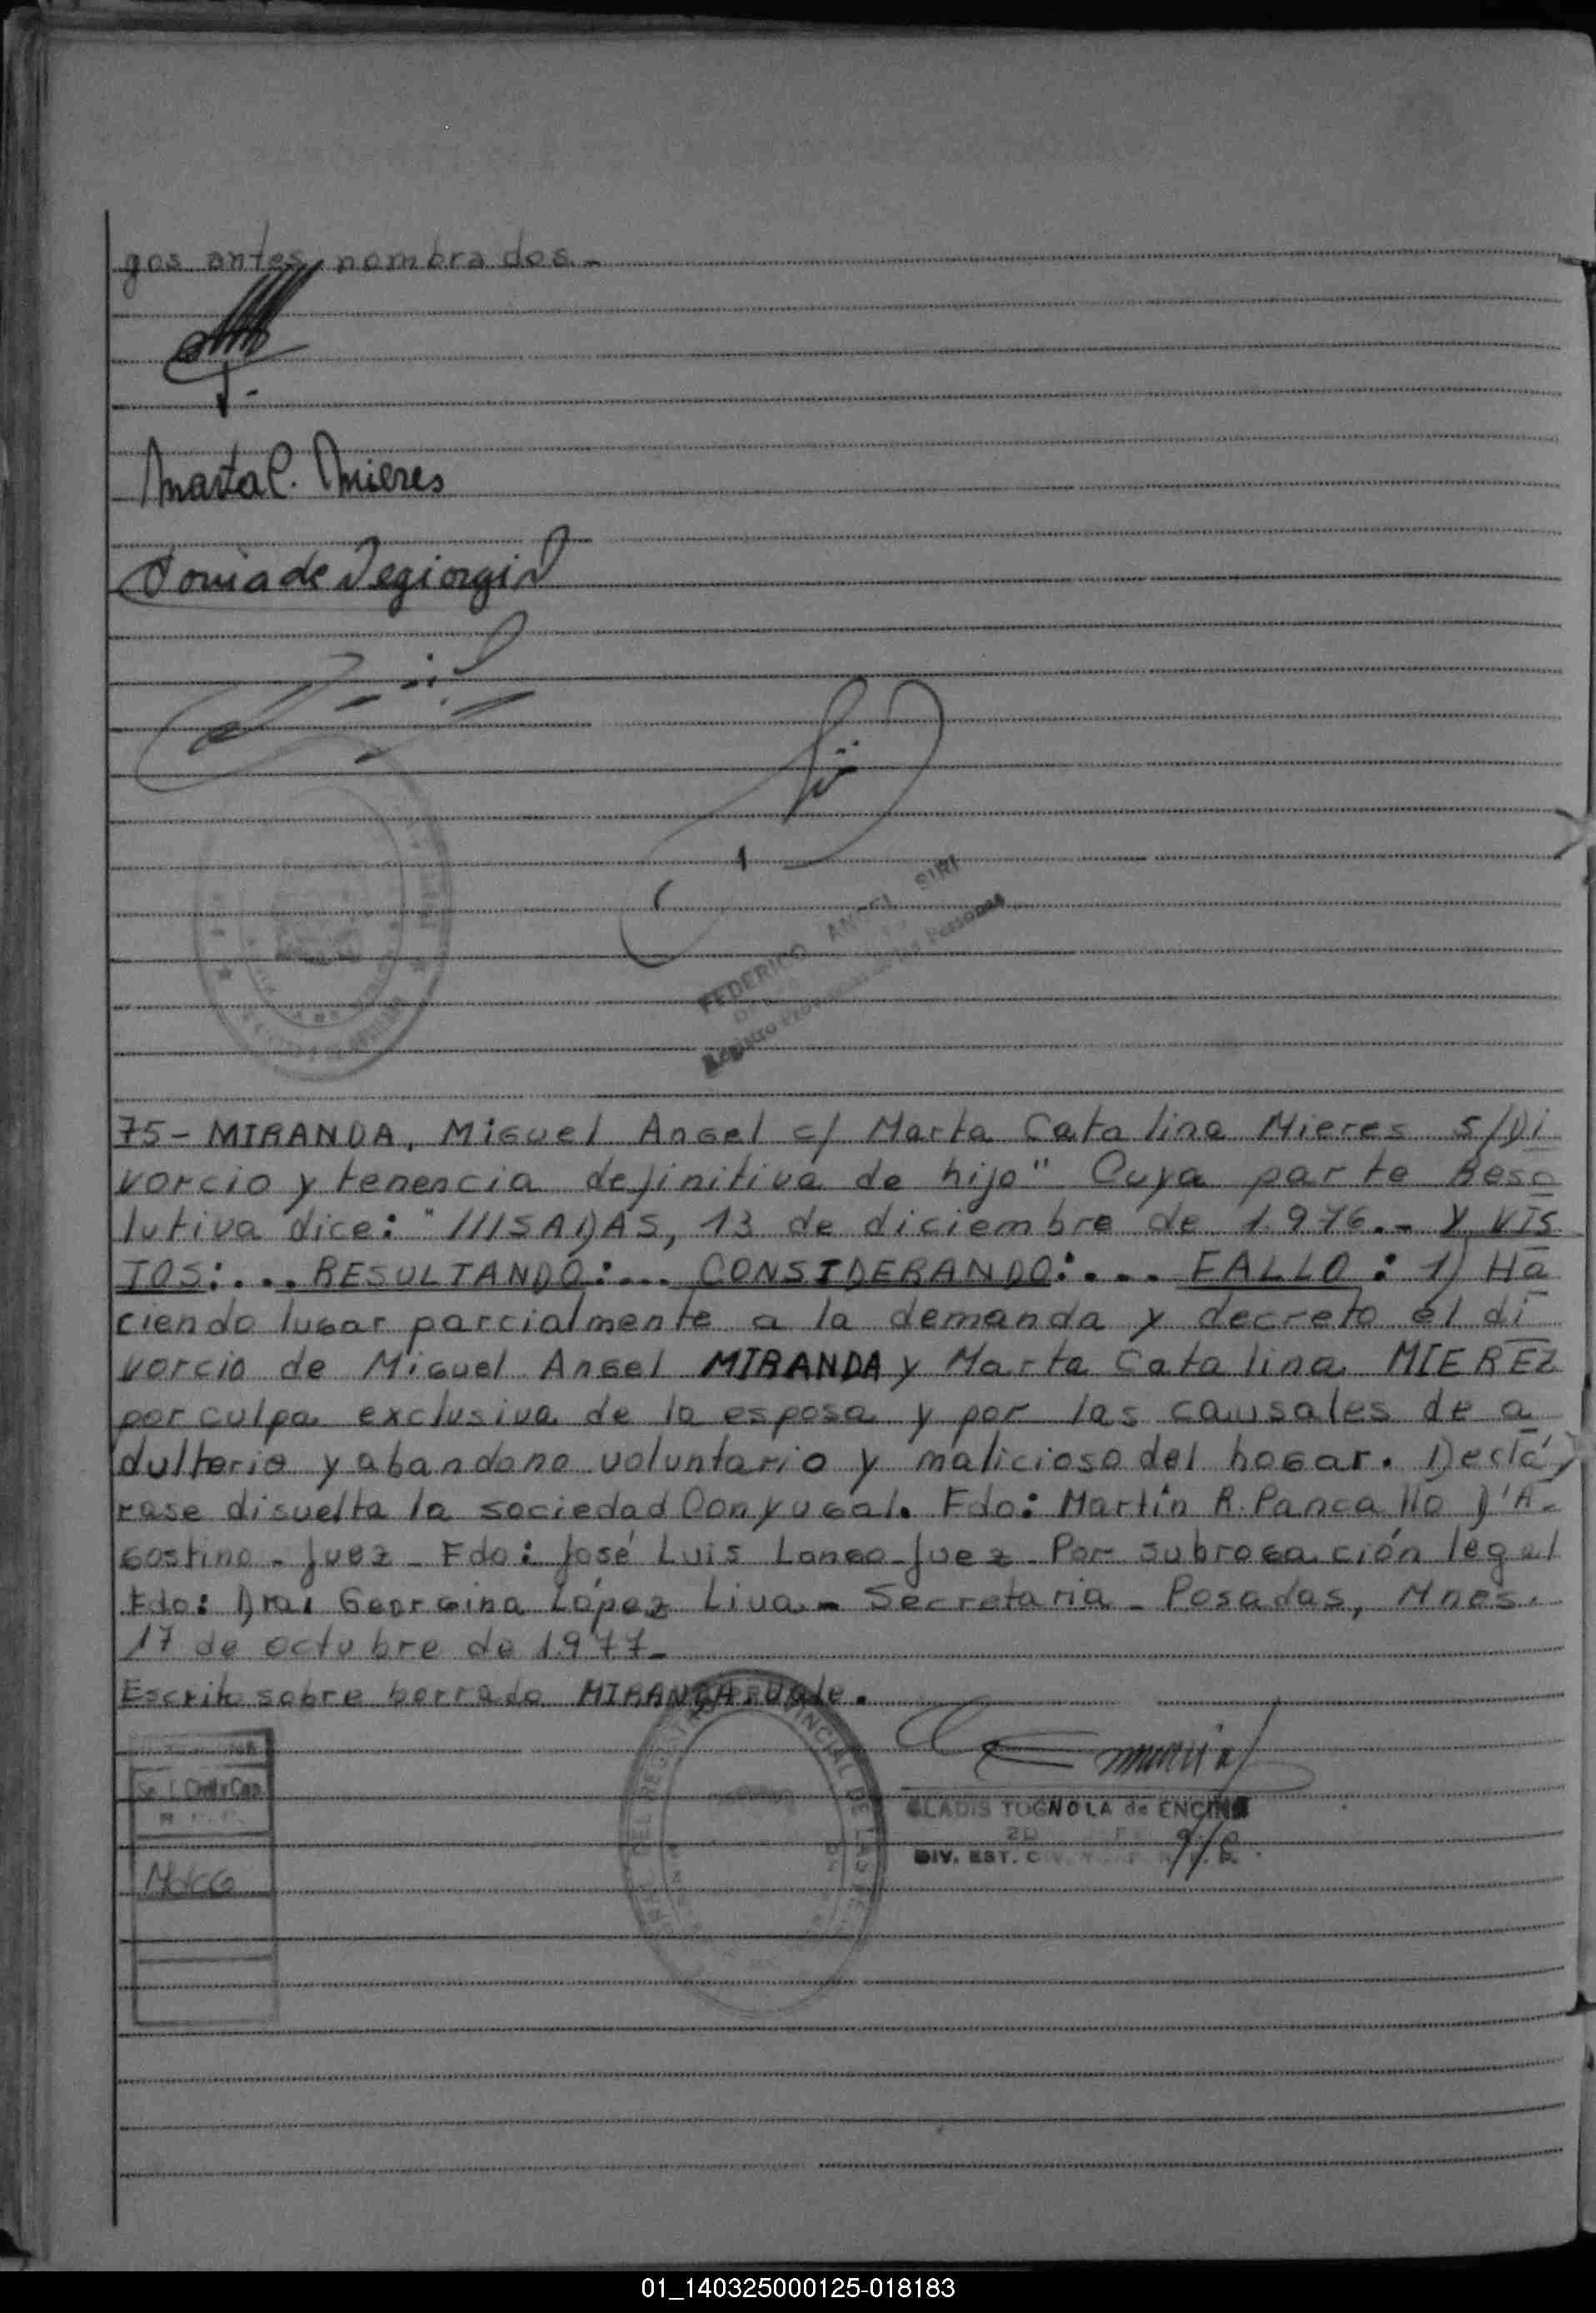 gos antes nombrados.-
Marta C. Mieres
Sonia de Degiorgi
FEDERICO ANGEL SIRI
Registro Provincial de las Personas
75- MIRANDA, Miguel Angel c/ Marta Catalina Mieres s/Di
vorcio y tenencia definitiva de hijo" Cuya parte Reso
lutiva dice: "///SADAS, 13 de diciembre de 1.976.- Y VIS
TOS:... RESULTANDO:... CONSIDERANDO:.... FALLO: 1) Ha
ciendo lugar parcialmente a la demanda y decreto el di
vorcio de Miguel Angel MIRANDA y Marta Catalina MIEREZ
por culpa exclusiva de la esposa y por las causales de a
dulterio y abandono voluntario y malicioso del hogar. Declá
rase disuelta la sociedad Conyugal. Fdo: Martín R. Pancallo D'A-
gostino - Juez - Fdo: José Luis Longo - Juez - Por subrogación legal
Fdo: Dra. Georgina López Liva.- Secretaria - Posadas, Mnes.
17 de octubre de 1.977.-
Escrito sobre borrado MIRANDA: Vale.
REGISTRO PROVINCIAL DE LAS
GLADIS TOGNOLA de ENCINA
DIV. EST.
01_140325000125-018183